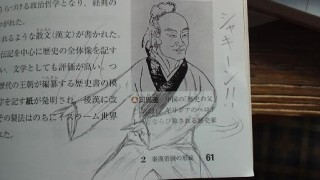 なら政治哲学となり、経典の
われた。
れるような散文(漢文)が書かれた。
伝記を中心に歴史の全体像を記す
、文学としても評価が高い。つ
歴代の王朝が編纂する歴史書の模
字を記す紙が発明され、後漢に改
その製法はのちにイスラーム世界
た。
シャキーン!!
司馬遷 中国の「歴史の父」
ならび称される歴史家
2 秦漢帝国の形成 61